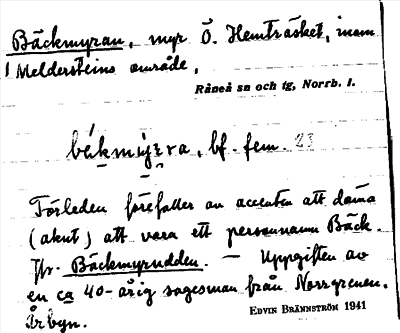 Bäckmyran, myr Ö. Hemträsket, inom
Meldersteins område,
Råneå sn och tg, Norrb. l.
bf. fem. 23
Förleden förefaller av accenten att döma
(akut) att vara ett personnamn Bäck.
Jfr. Bäckmyrudden. — Uppgiften av
en ca 40-årig sagesman från Norrgrenen.
Årbyn.
EDVIN BRÄNNSTRÖM 1941